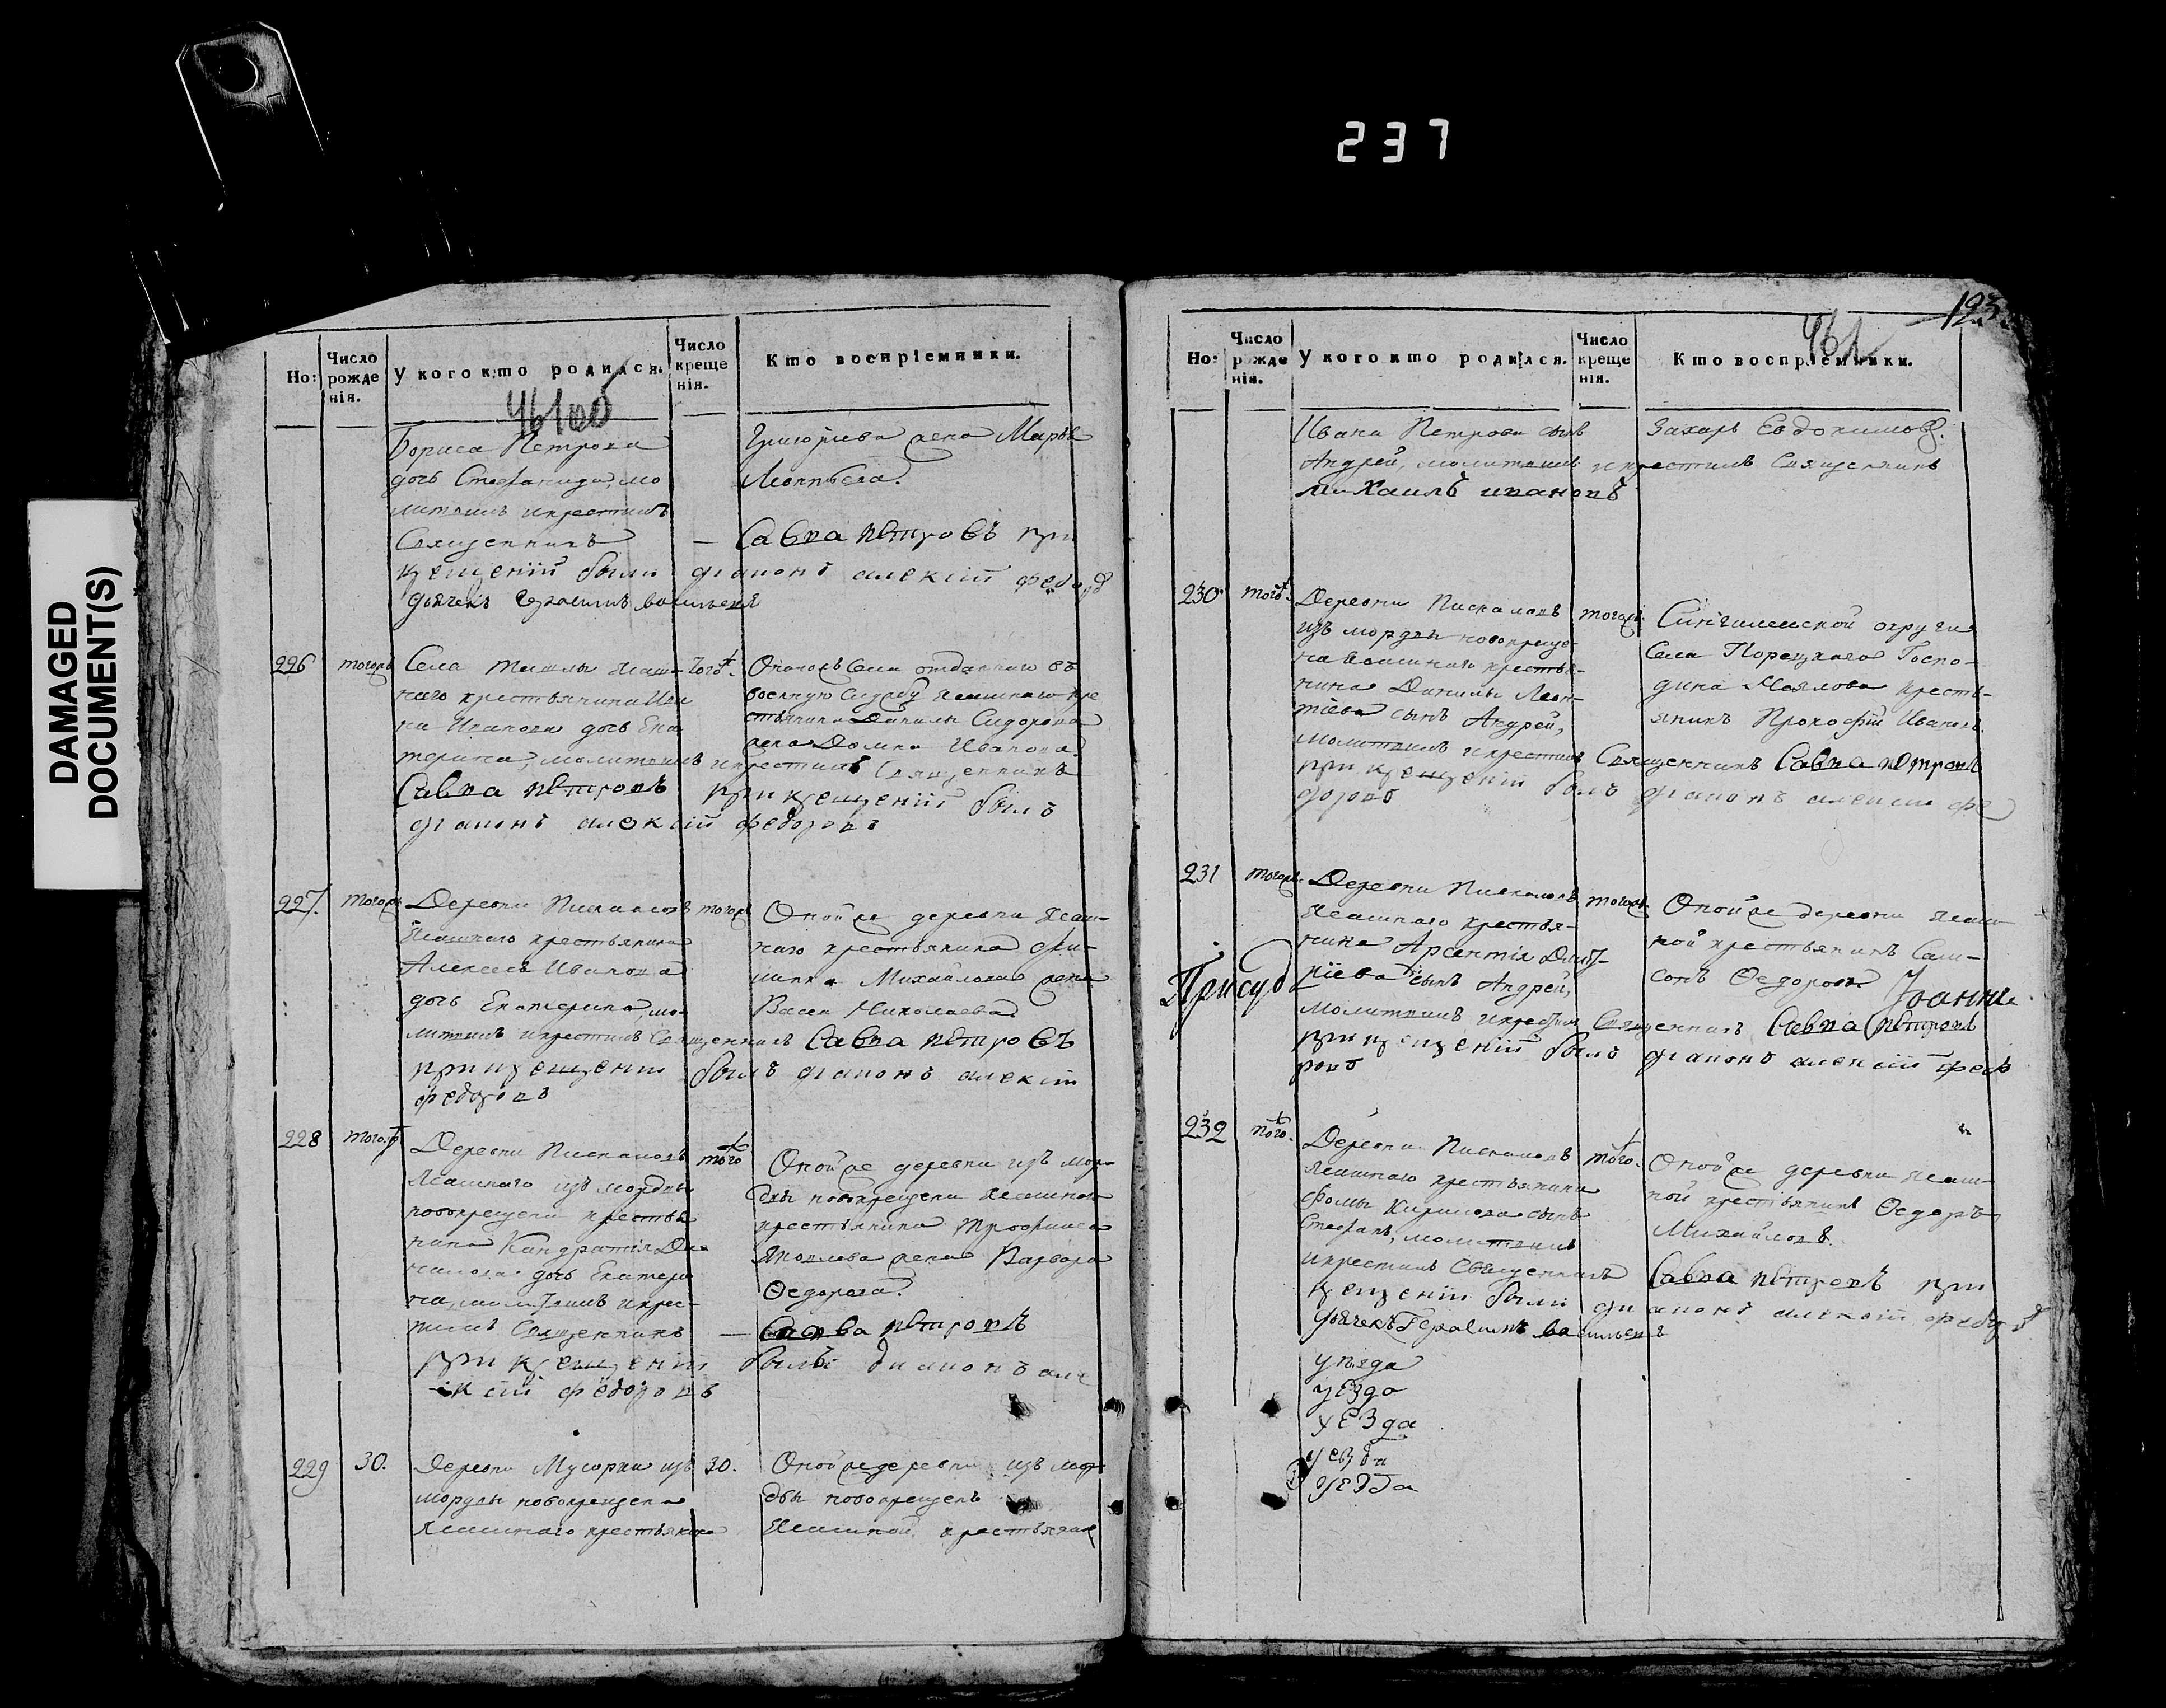 237
DAMAGED
DOCUMENT(S)
Но:
Число
рожде
нія.
У кого кто родился.
Число
креще
нія.
Кто воспріемники.
Бориса Петрова
дочь Стефанида, мо
литвилъ и крестилъ
Священникъ
— Савва петровъ при
крещеніи были діаконъ алексій
дьячекъ Герасимъ васильевъ
Григорьева жена Марья
Леонтьева.
226
тогожъ
Села
ясаш-
наго крестьянина Ива
на Иванова дочь Ека
терина, молитвилъ и крестилъ Священникъ
Савва петровъ при крещеніи былъ
діаконъ алексій федоровъ
тогож.
Оногожъ Села отданнаго въ
военную Службу ясашнаго кре
стьянина Данилы Сидорова
жена Домна Иванова.
227.
тогожъ
Деревни Пискаловъ
ясашнаго крестьянина
Алексея Иванова
дочь Екатерина, мо-
литвилъ и крестилъ Священникъ Савва петровъ
при крещеніи былъ діаконъ алексій
федоровъ
тогожъ
Оной же деревни ясаш-
наго крестьянина Фи-
липпа Михайлова жена
Васса Николаева
228
тогож
Деревни Пискаловъ
ясашнаго изъ мордвы
новокрещена крестья
нина Кандратія Да-
нилова дочь Екатери
на, молитвилъ и крес-
тилъ Священникъ — Савва петровъ
при крещеніи былъ діаконъ але
ксій федоровъ
тогож
Оной же деревни изъ мор-
двы новокрещена ясашнаго
крестьянина Трофима
Яковлева жена Варвара
Федорова.
229
30.
Деревни Мусорки изъ
мордвы новокрещена
ясашнаго крестьянина
30.
Оной же деревни изъ мор
двы новокрещенъ
ясашной крестьянинъ
123
461
Но:
Число
рожде
нія.
У кого кто родился.
Число
креще
нія.
Кто воспріемники.
Ивана Петрова сынъ
Андрей, молитвилъ и крестилъ Священникъ
михаилъ ивановъ
Захаръ Евдокимовъ.
230
тогож.
Деревни Пискаловъ
изъ мордвы новокреще-
на ясашнаго крестья-
нина Данилы Леон-
тіева сынъ Андрей,
молитвилъ и крестилъ Священникъ Савва петровъ
при крещеніи былъ діаконъ алексій фе
доровъ
тогожъ.
Сингилеевской округи
Села Порецкаго Госпо-
дина
кресть-
янинъ Прокофій Ивановъ.
231
тогожъ.
Деревни Пискаловъ
ясашнаго крестья-
нина Арсентія Дмит-
ріева сынъ Андрей,
молитвилъ и крестилъ Священникъ Савва петровъ
при крещеніи былъ діаконъ алексій федо
ровъ
тогожъ.
Оной же деревни ясаш
ной крестьянинъ Сам-
сонъ Федоровъ
Присуд
Іоанна
232
тогож.
Деревни Пискаловъ
ясашнаго крестьянина
Фомы Кирилова сынъ
Стефанъ, молитвилъ
и крестилъ Священникъ Савва петровъ при
крещеніи были діаконъ алексій федоровъ
дьячекъ Герасимъ васильевъ
тогож.
Оной же деревни ясаш-
ной крестьянинъ Федоръ
Михайловъ.
уезда
уезда
уезда
уезда